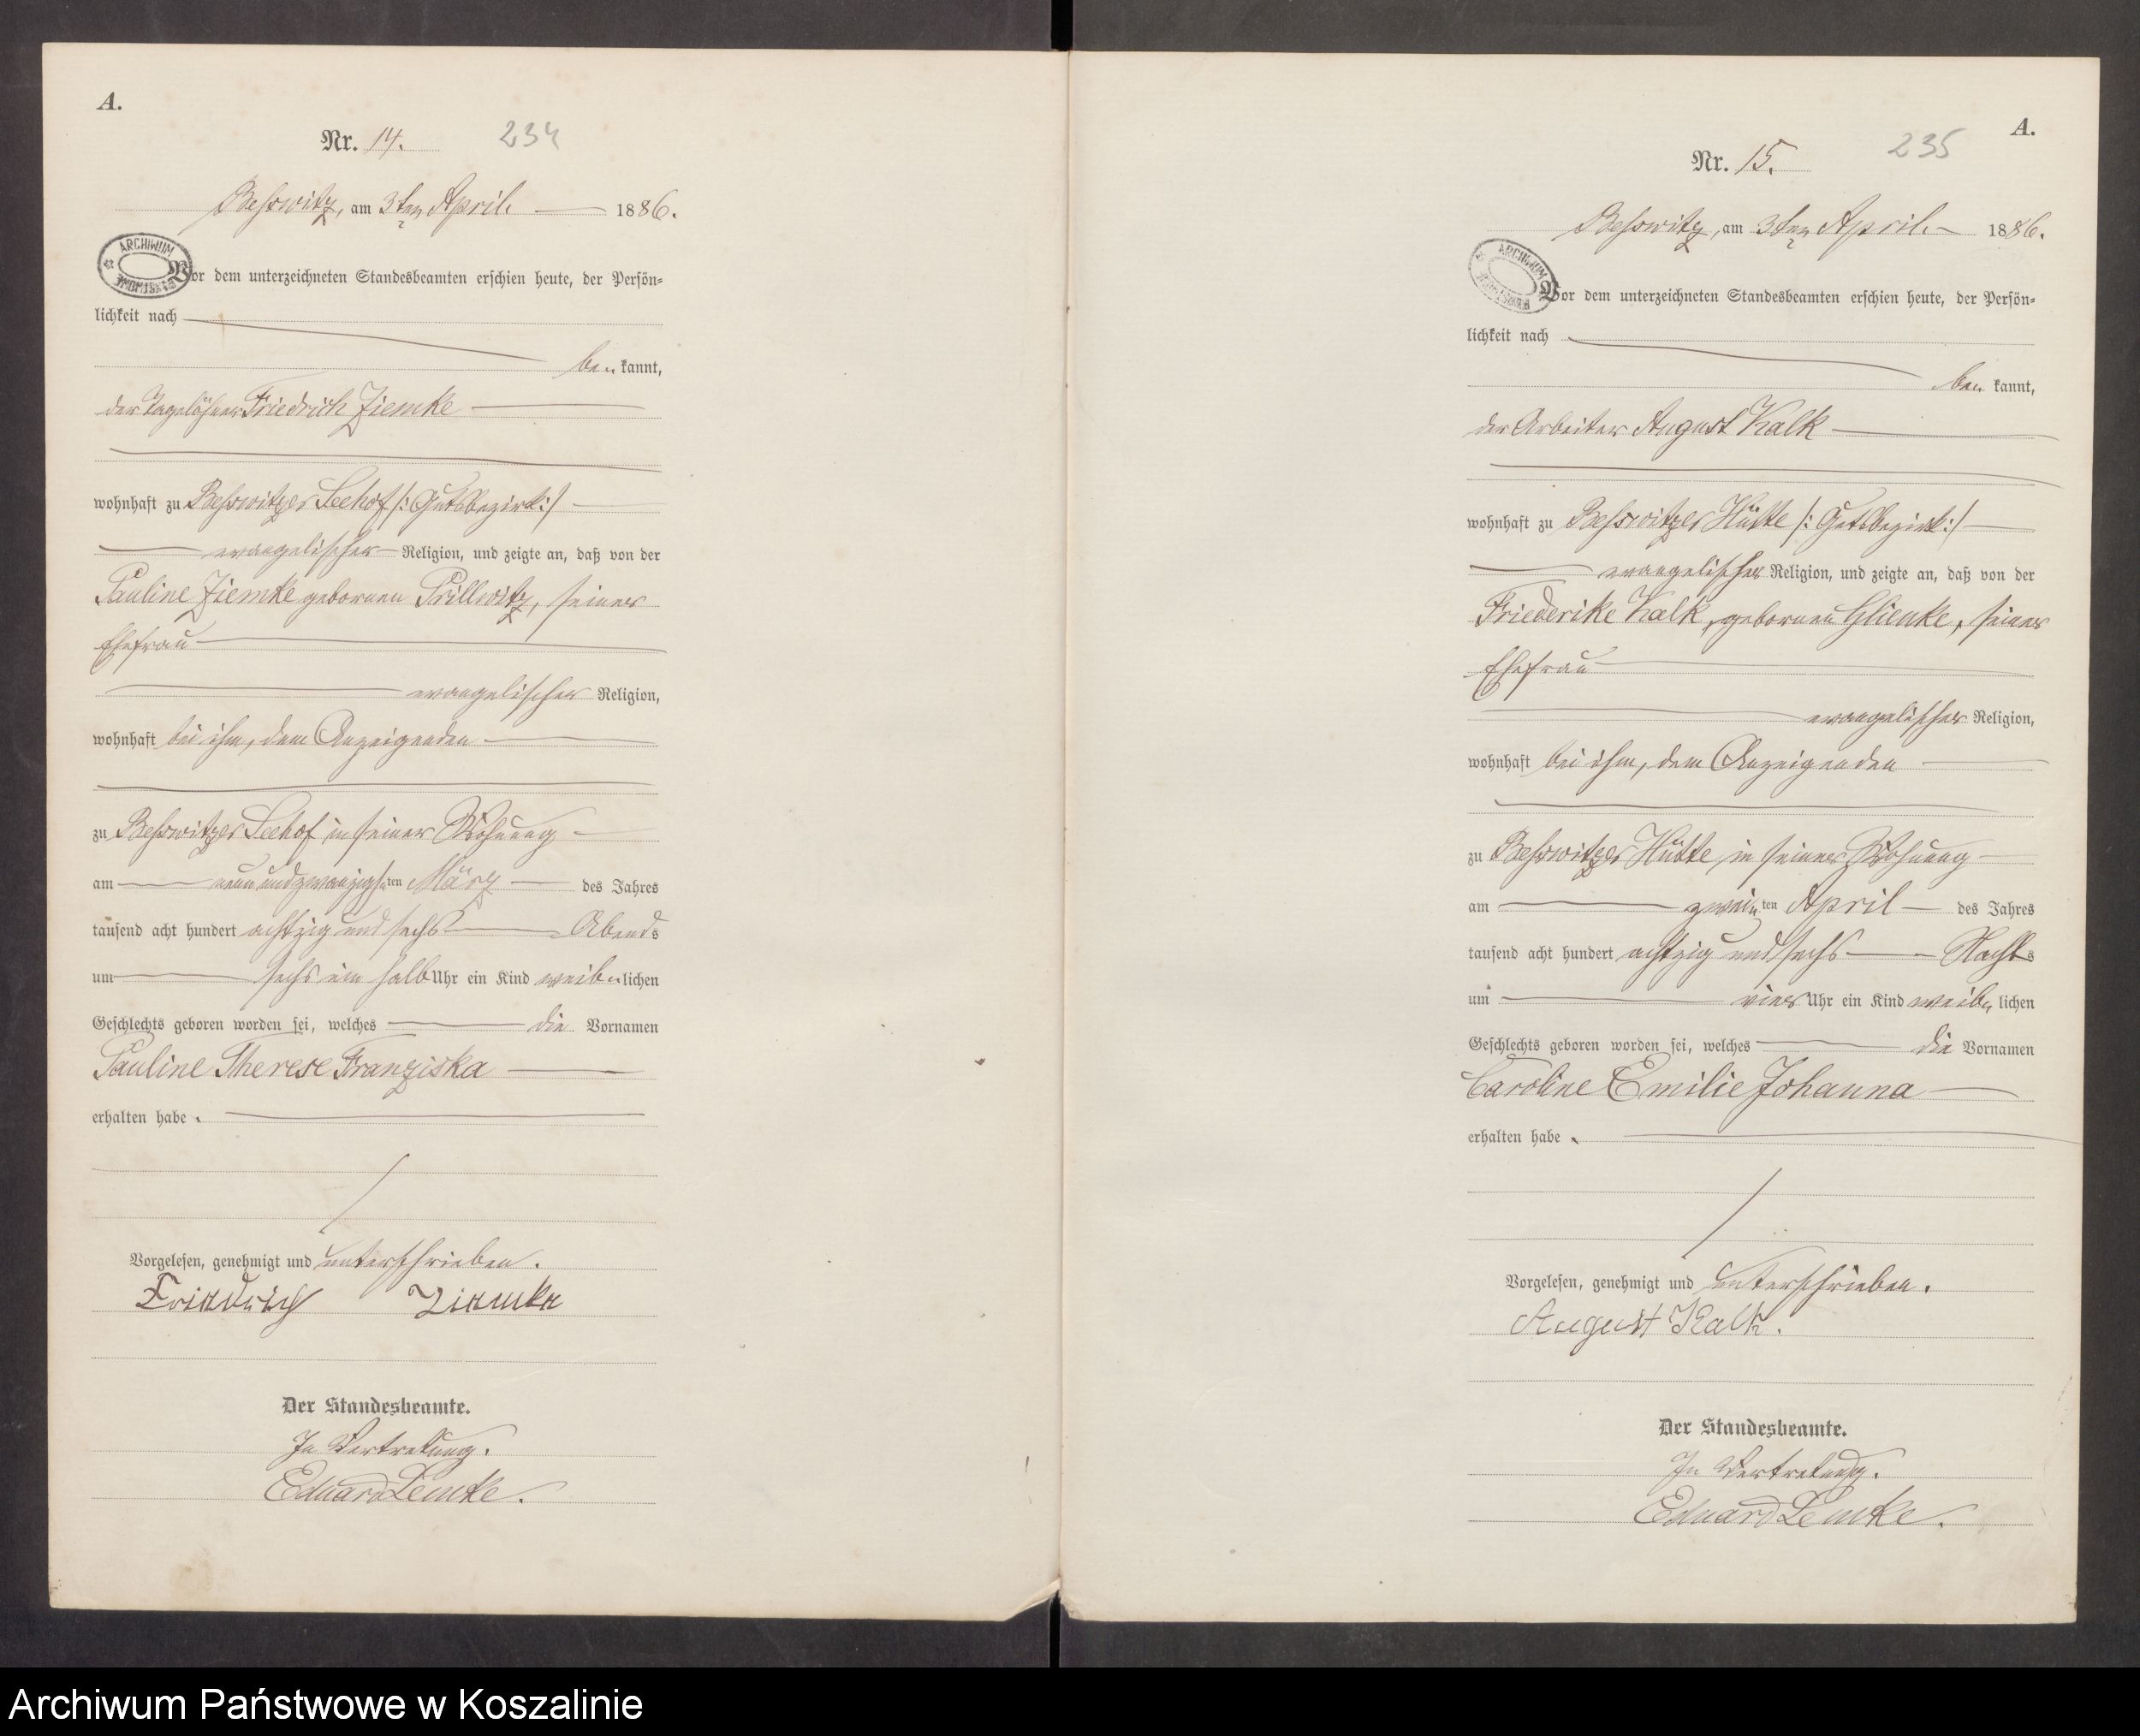 A.
Nr. 14. 234
Beßwitz, am 3ten April. 1886.
ARCHIWUM
Vor dem unterzeichneten Standesbeamten erschien heute, der Persön-
lichkeit nach
be kannt,
der Tagelöhner Friedrich Ziemke
wohnhaft zu Beßwitzer Seehof /: Gutsbezirk :/
evangelischer Religion, und zeigte an, daß von der
Pauline Ziemke gebornen Prillwitz, seiner
Ehefrau
evangelischer Religion,
wohnhaft bei ihm, dem Anzeigenden
zu Beßwitzer Seehof in seiner Wohnung
am neun und zwanzigsten März des Jahres
tausend acht hundert achtzig und sechs Abends
um sechs ein halb Uhr ein Kind weiblichen
Geschlechts geboren worden sei, welches die Vornamen
Pauline Therese Franziska
erhalten habe.
Vorgelesen, genehmigt und unterschrieben.
Friedrich Ziemke
Der Standesbeamte.
In Vertretung.
Eduard Lemke.
A.
Nr. 15. 235
Beßwitz, am 3ten April. 1886.
ARCHIWUM
Vor dem unterzeichneten Standesbeamten erschien heute, der Persön-
lichkeit nach
be kannt,
der Arbeiter August Kalk
wohnhaft zu Beßwitzer Hütte /: Gutsbezirk :/
evangelischer Religion, und zeigte an, daß von der
Friederike Kalk, gebornen Glienke, seiner
Ehefrau
evangelischer Religion,
wohnhaft bei ihm, dem Anzeigenden
zu Beßwitzer Hütte in seiner Wohnung
am zweiten April des Jahres
tausend acht hundert achtzig und sechs Nachts
um vier Uhr ein Kind weiblichen
Geschlechts geboren worden sei, welches die Vornamen
Caroline Emilie Johanna
erhalten habe.
Vorgelesen, genehmigt und unterschrieben.
August Kalk.
Der Standesbeamte.
In Vertretung.
Eduard Lemke.
Archiwum Państwowe w Koszalinie